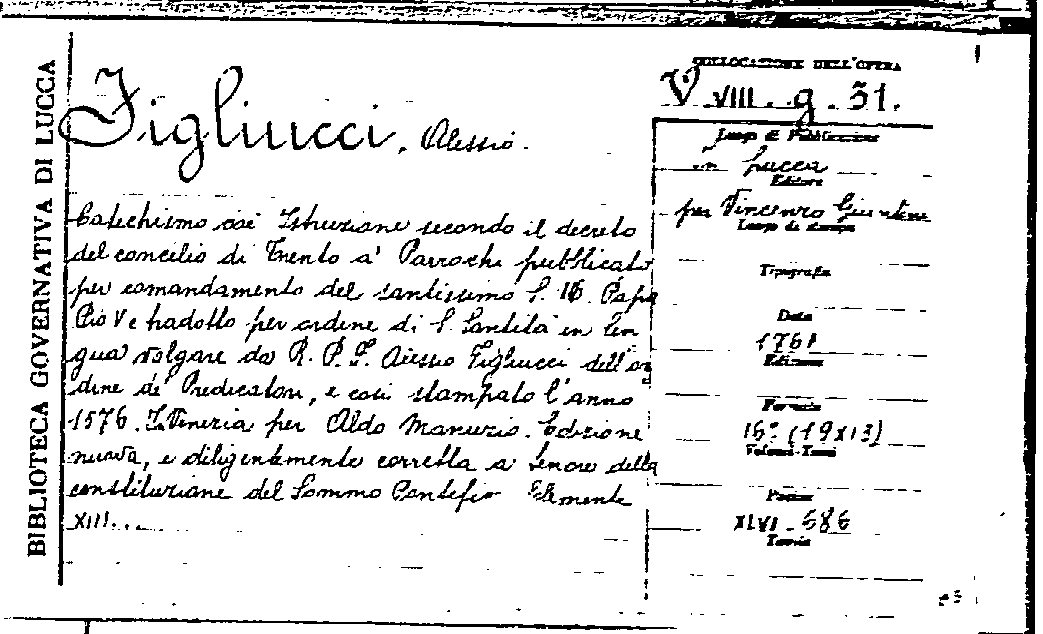 BIBLIOTECA GOVERNATIVA DI LUCCA
Figliucci, Alessio.
Catechismo cioè Istruzione secondo il decreto
del concilio di Trento a' Parrochi pubblicato
per comandamento del santissimo S. N. Papa
Pio V e tradotto per ordine di S. Santità in lin
gua volgare da R. P. F. Alessio Figliucci dell'or
dine de' Predicatori, e così stampato l'anno
1576. In Venezia per Aldo Manuzio. Edizione
nuova, e diligentemente corretta a tenore della
constituzione del Sommo Pontefice Clemente
XIII....
COLLOCAZIONE DELL'OPERA
VIII. g. 31.
Luogo di Pubblicazione
in Lucca
Editore
per Vincenzo Giuntini
Luogo di stampa
Tipografia
Data
1761
Edizione
Formato
16º (19x13)
Volumi-Tomi
Pagine
XLVI-686
Tavole